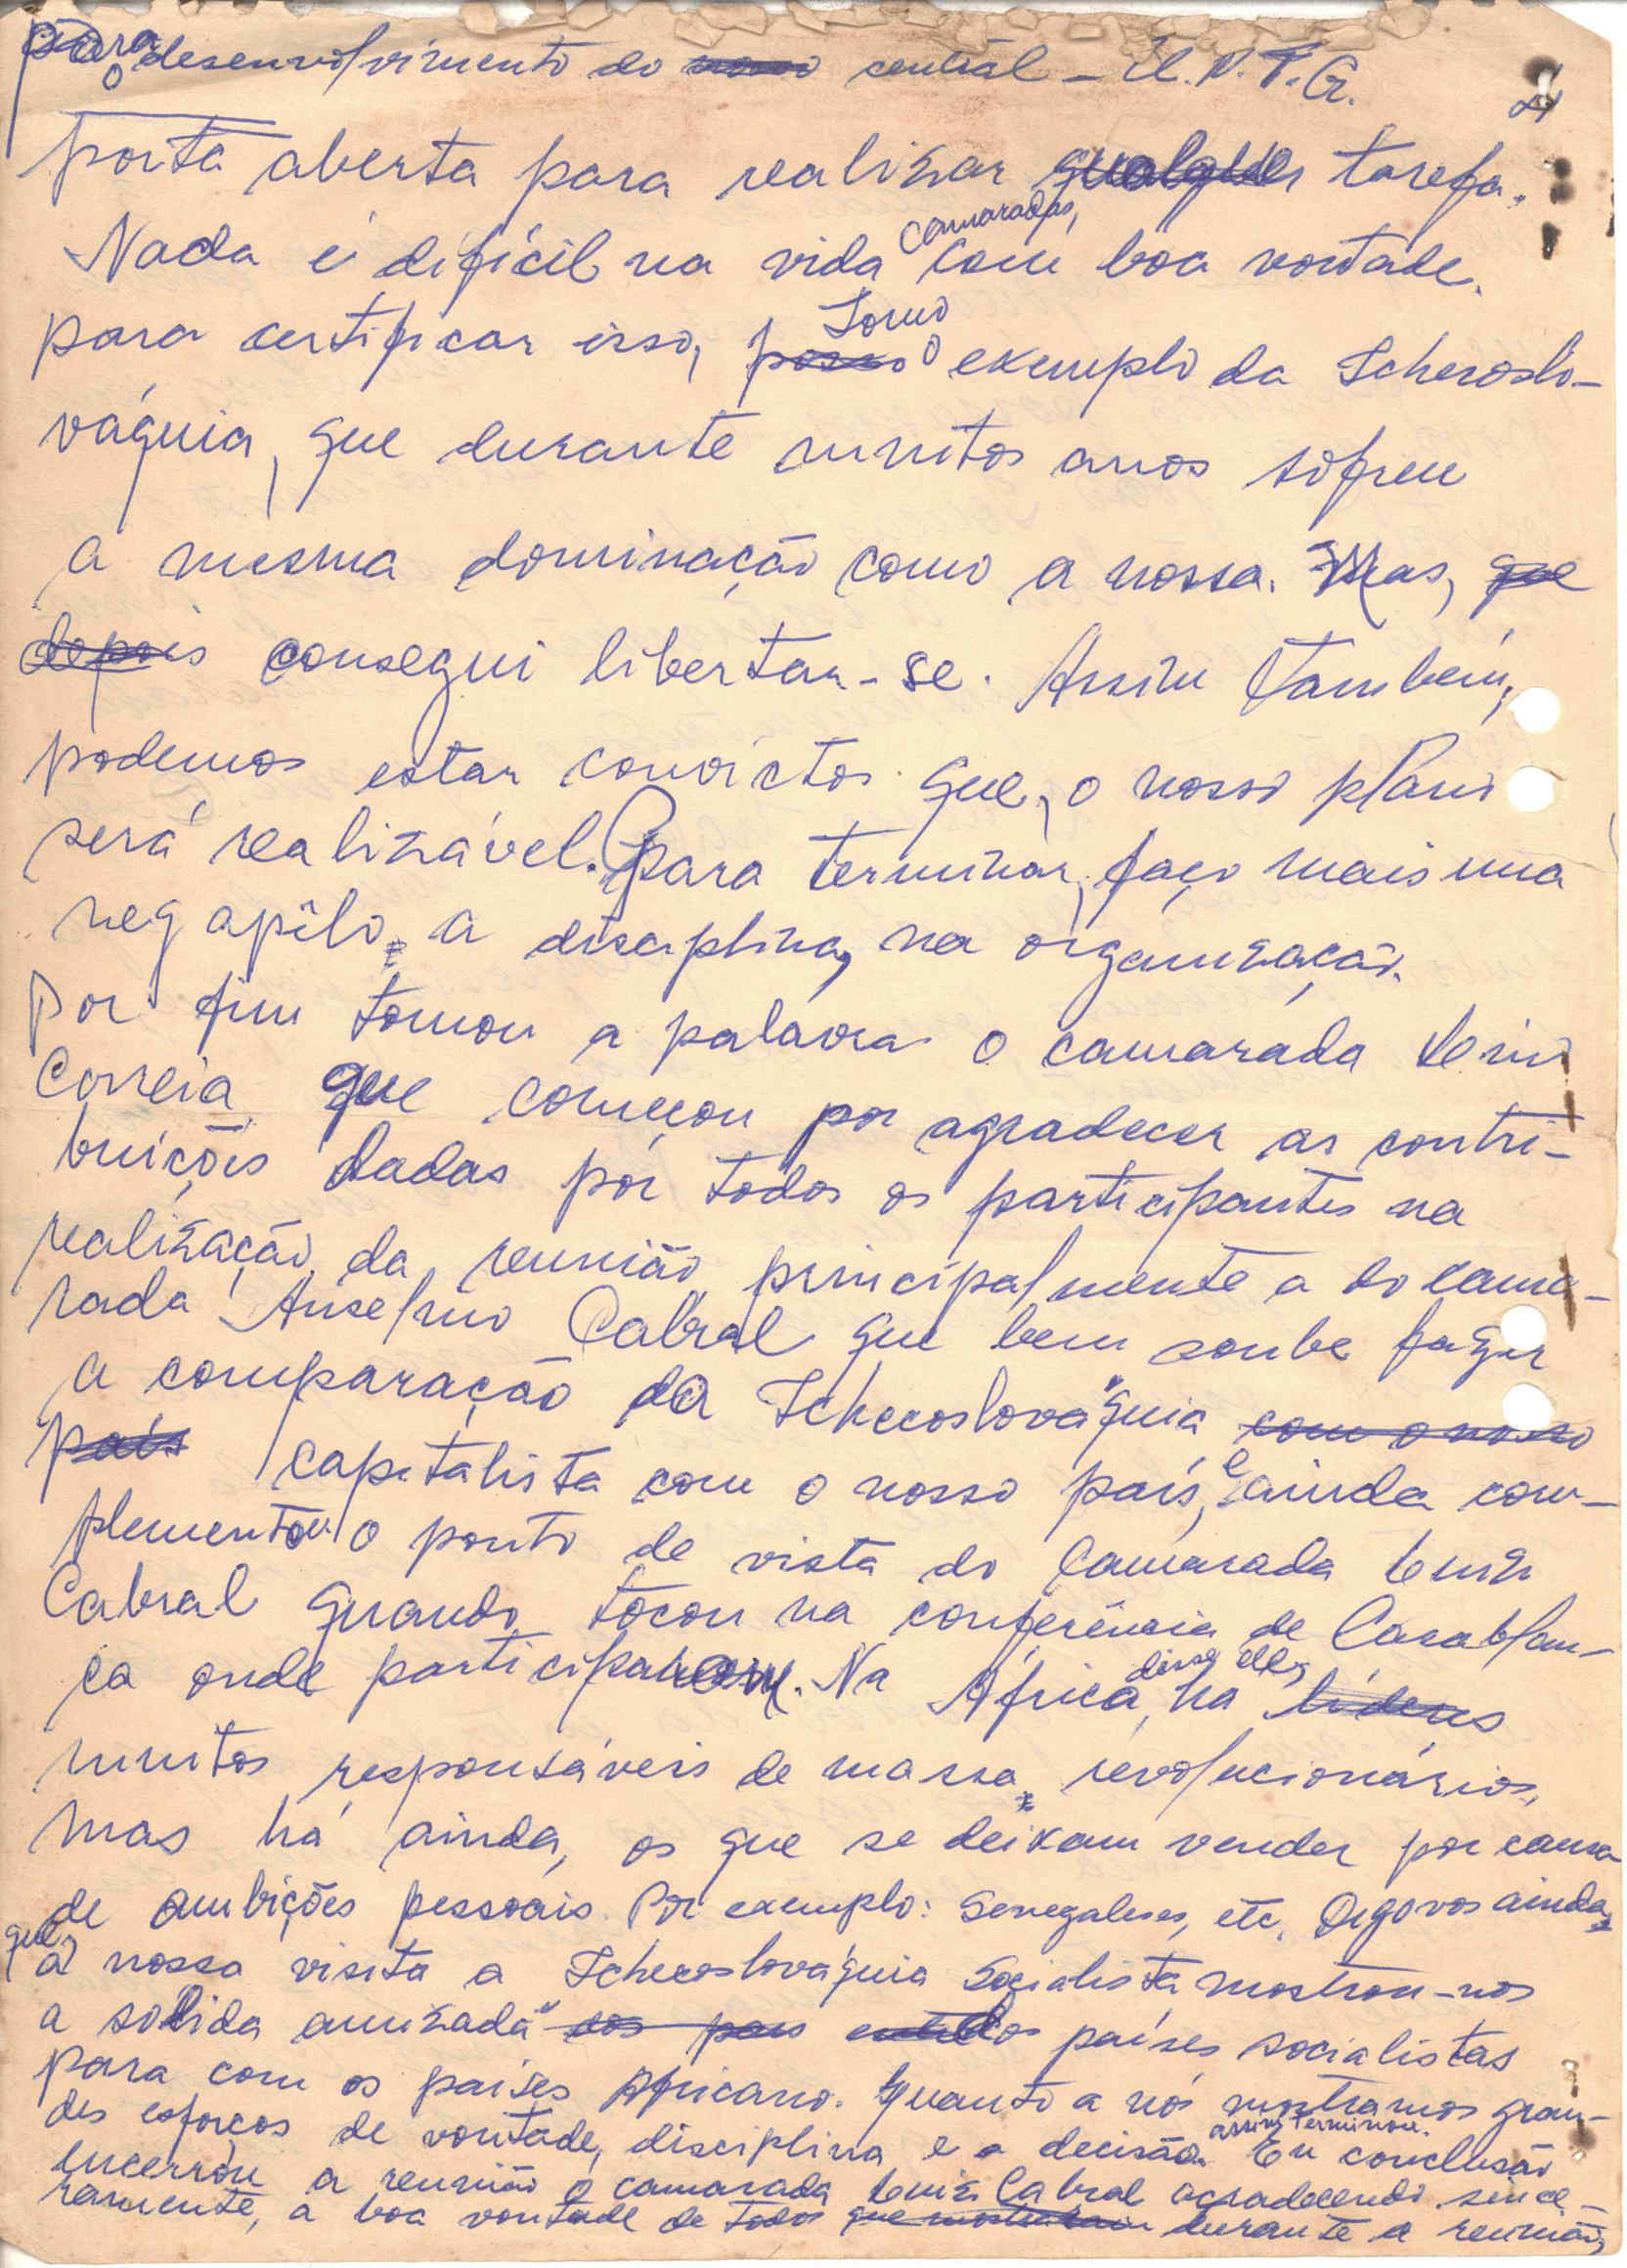 para o desenvolvimento do central - U.N.T.G. 4
porta aberta para realizar qualquer tarefa.
Nada é difícil na vida camaradas, com boa vontade.
para certificar isso, Tomo o exemplo da Tchecoslo-
váquia, que durante muitos anos sofreu
a mesma dominação como a nossa. Mas, que
depois consegui libertar-se. Assim também,
podemos estar convictos que, o nosso plano
será realizável. Para terminar, faço mais uma
vez apêlo, a disciplina, na organização.
Por fim tomou a palavra o camarada
Correia, que começou por agradecer as contri-
buições dadas por todos os participantes na
realização da reunião, principalmente a do cama-
rada Anselmo Cabral que bem soube fazer
a comparação da Tchecoslováquia com o nosso
país capitalista com o nosso país, e ainda com-
plementou o ponto de vista do Camarada Luiz
Cabral quando tocou na conferência de Casablan-
ca onde participaram. Na África, disse ele, ha líderes
muitos responsáveis de massa, revolucionários,
mas há ainda, os que se deixam vender por causa
de ambições pessoais. Por exemplo: Senegaleses, etc. Digo vos ainda,
que a nossa visita a Tchecoslováquia Socialista mostrou-nos
a sólida amizada dos países socialistas
para com os países Africano. Quanto a nós mostramos gran-
des esforços de vontade, disciplina e a decisão. assim terminou. Em conclusão
encerrou a reunião o camarada Luiz Cabral agradecendo since-
ramente, a boa vontade de todos durante a reunião,